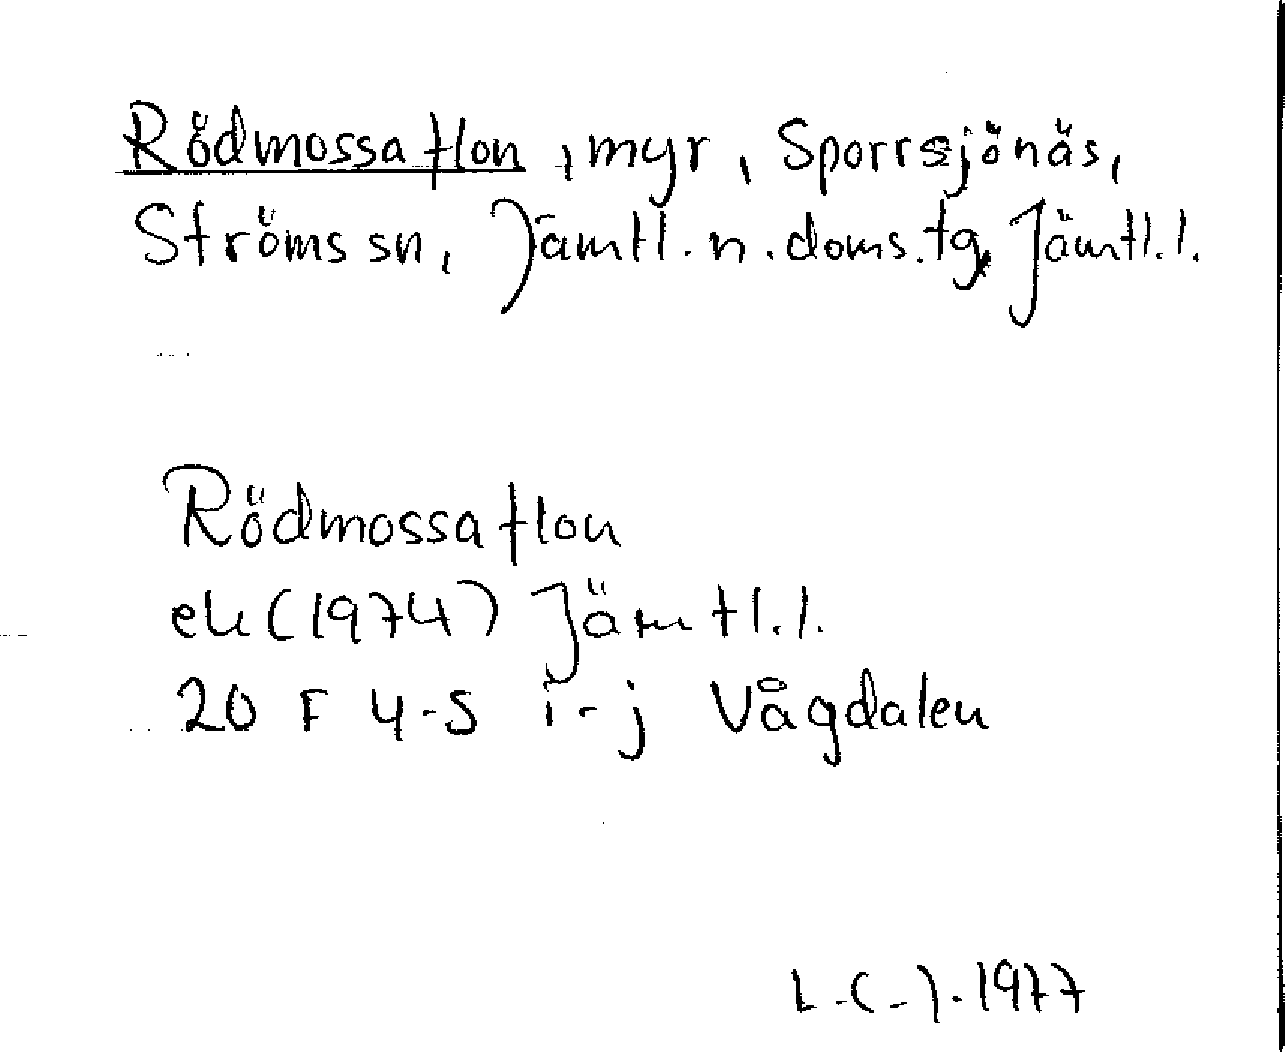 Rödmossaflon, myr, Sporrsjönäs,
Ströms sn, Jämtl. n. doms.tg, Jämtl. l.
Rödmossaflon
ek (1974) Jämtl. l.
20 F 4-5 i-j Vågdalen
L.C.J. 1977